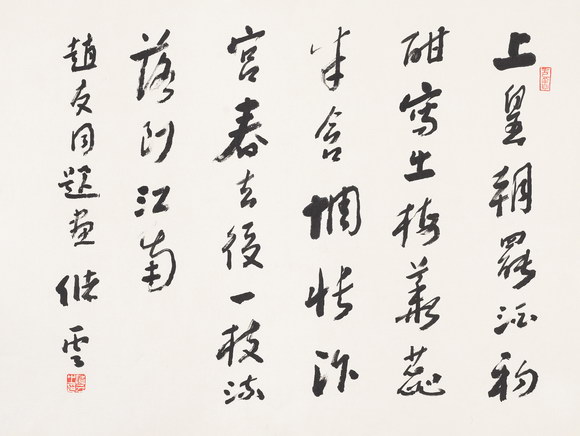 上皇朝罷酒初
酣寫出梅華蕊
半含惆悵汴
宮春去後一枝流
落到江南
趙友同題畫 雲